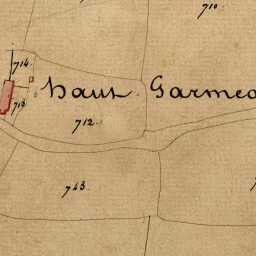 710
714
haut Garmea
713
712
743